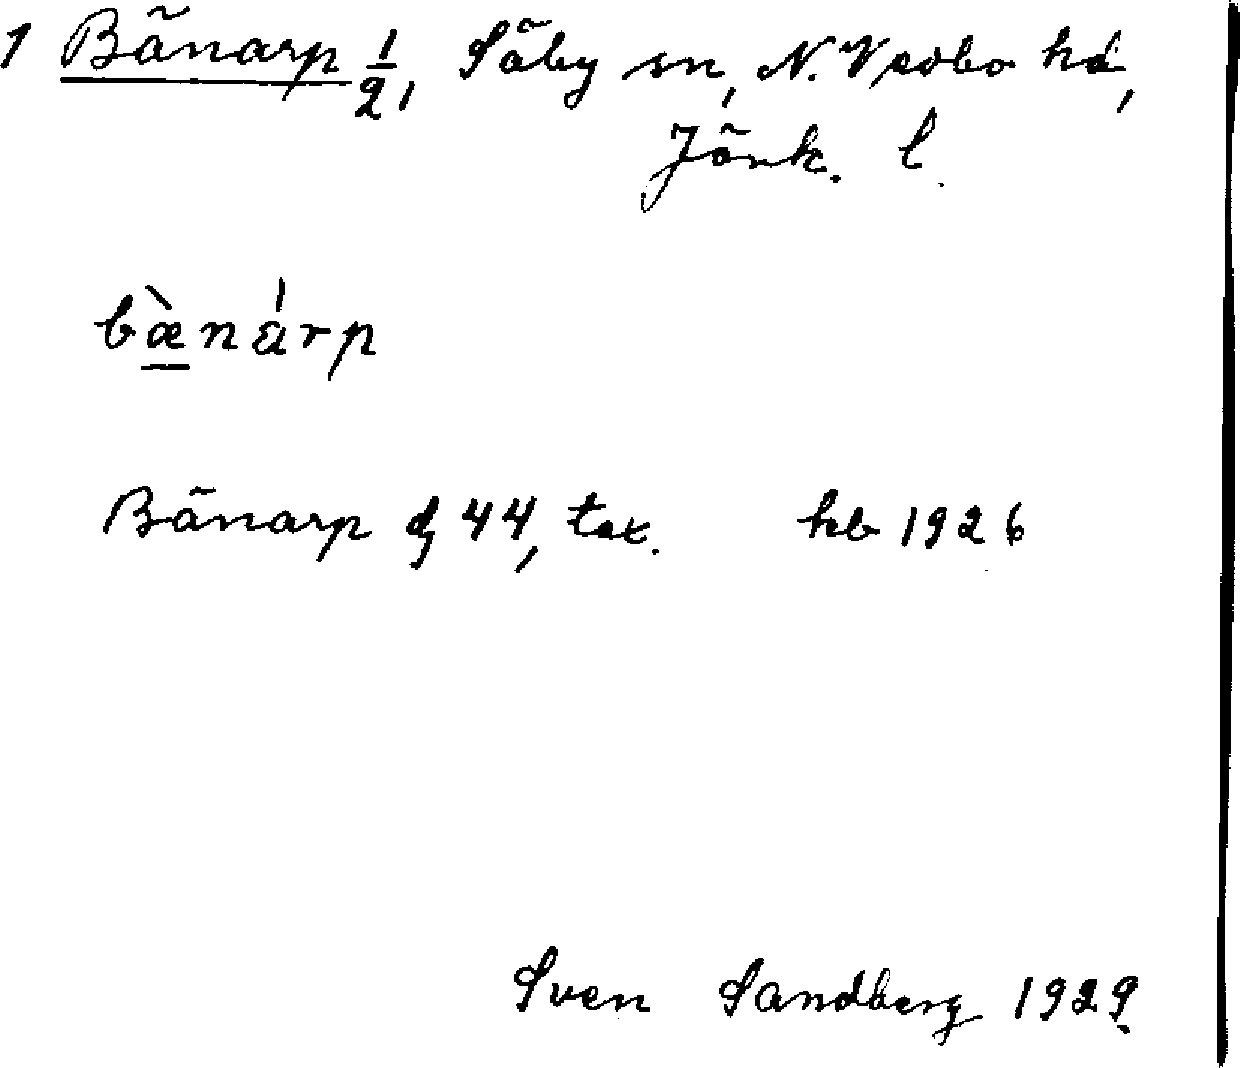 1 Bänarp 1/2, Säby sn, N. Vedbo hd,
Jönk. l.
bæ̀nárp
Bänarp 44, tax. hb 1926
Sven Sandberg 1929.